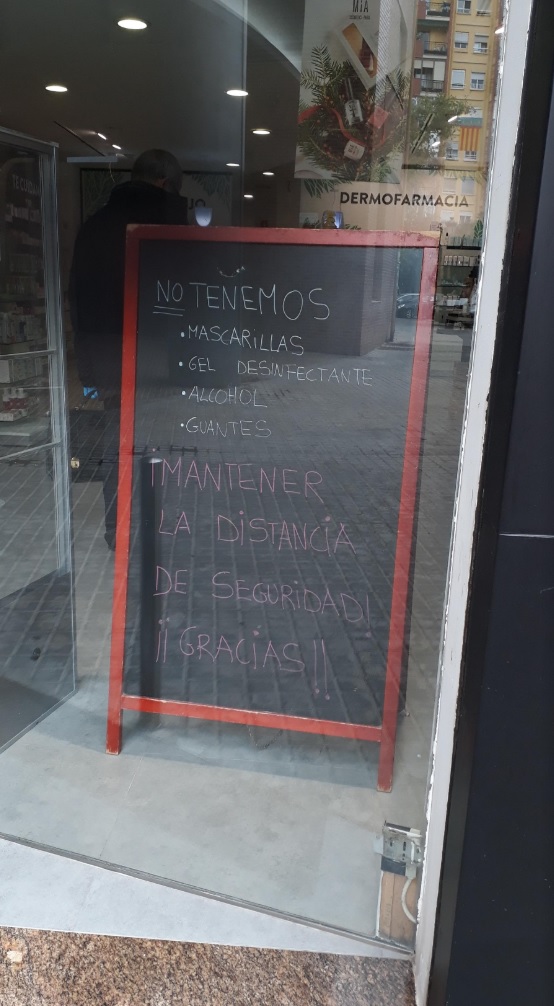 MiA
DERMOFARMACIA
NO TENEMOS
• MASCARiLLAS
• GEL DESINFECTANTE
• ALCOHOL
• GUANTES
¡MANTENER
LA DiSTANCiA
DE SEGURiDAD!
¡¡GRACiAS!!